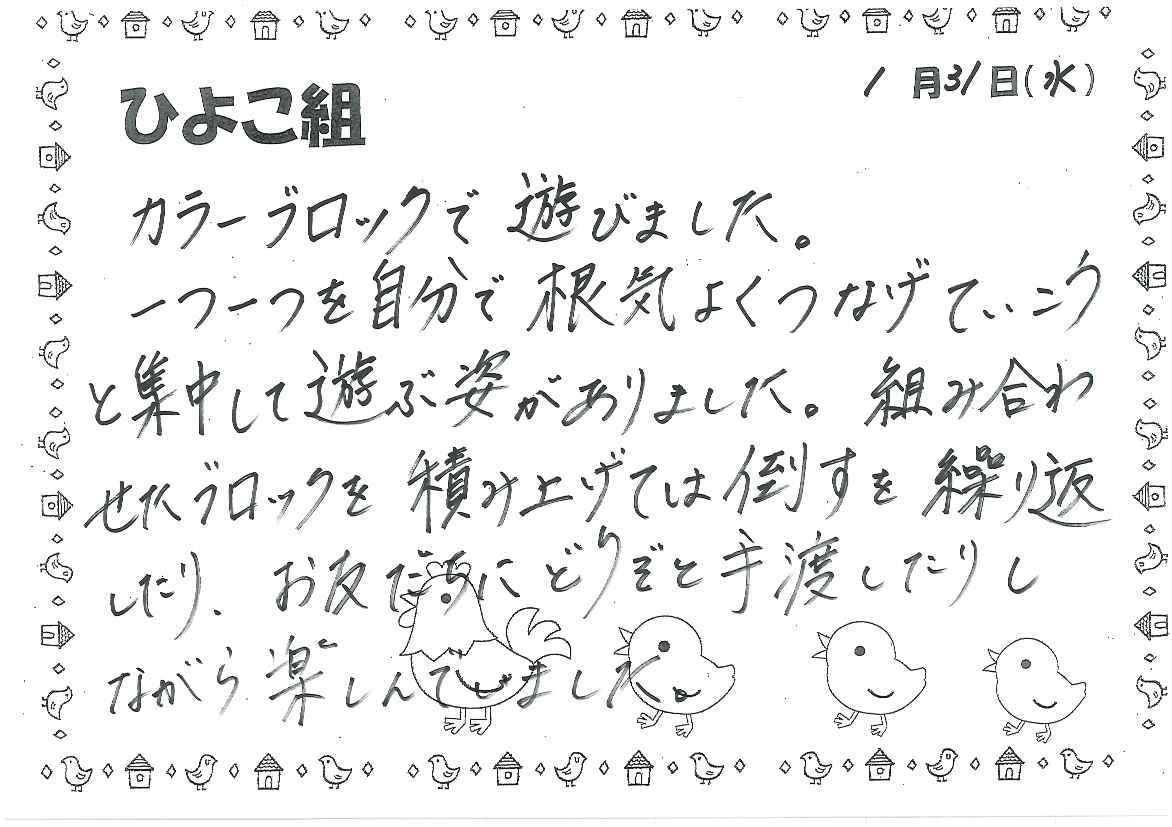 1月31日(水)
ひよこ組
カラーブロックで遊びました。
一つ一つを自分で根気よくつなげていこう
と集中して遊ぶ姿がありました。組み合わ
せたブロックを積み上げては倒すを繰り返
したり、お友だちにどうぞと手渡したりし
ながら楽しんでいました。